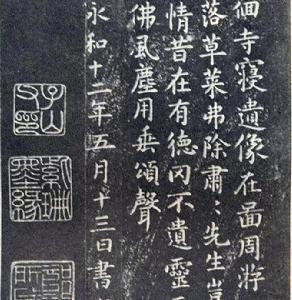 佪寺寢遺像在啚周遊
落草萊弗除肅〻先生豈
情昔在有德罔不遺靈
佛風塵用垂頌聲
永和十二年五月十三日書